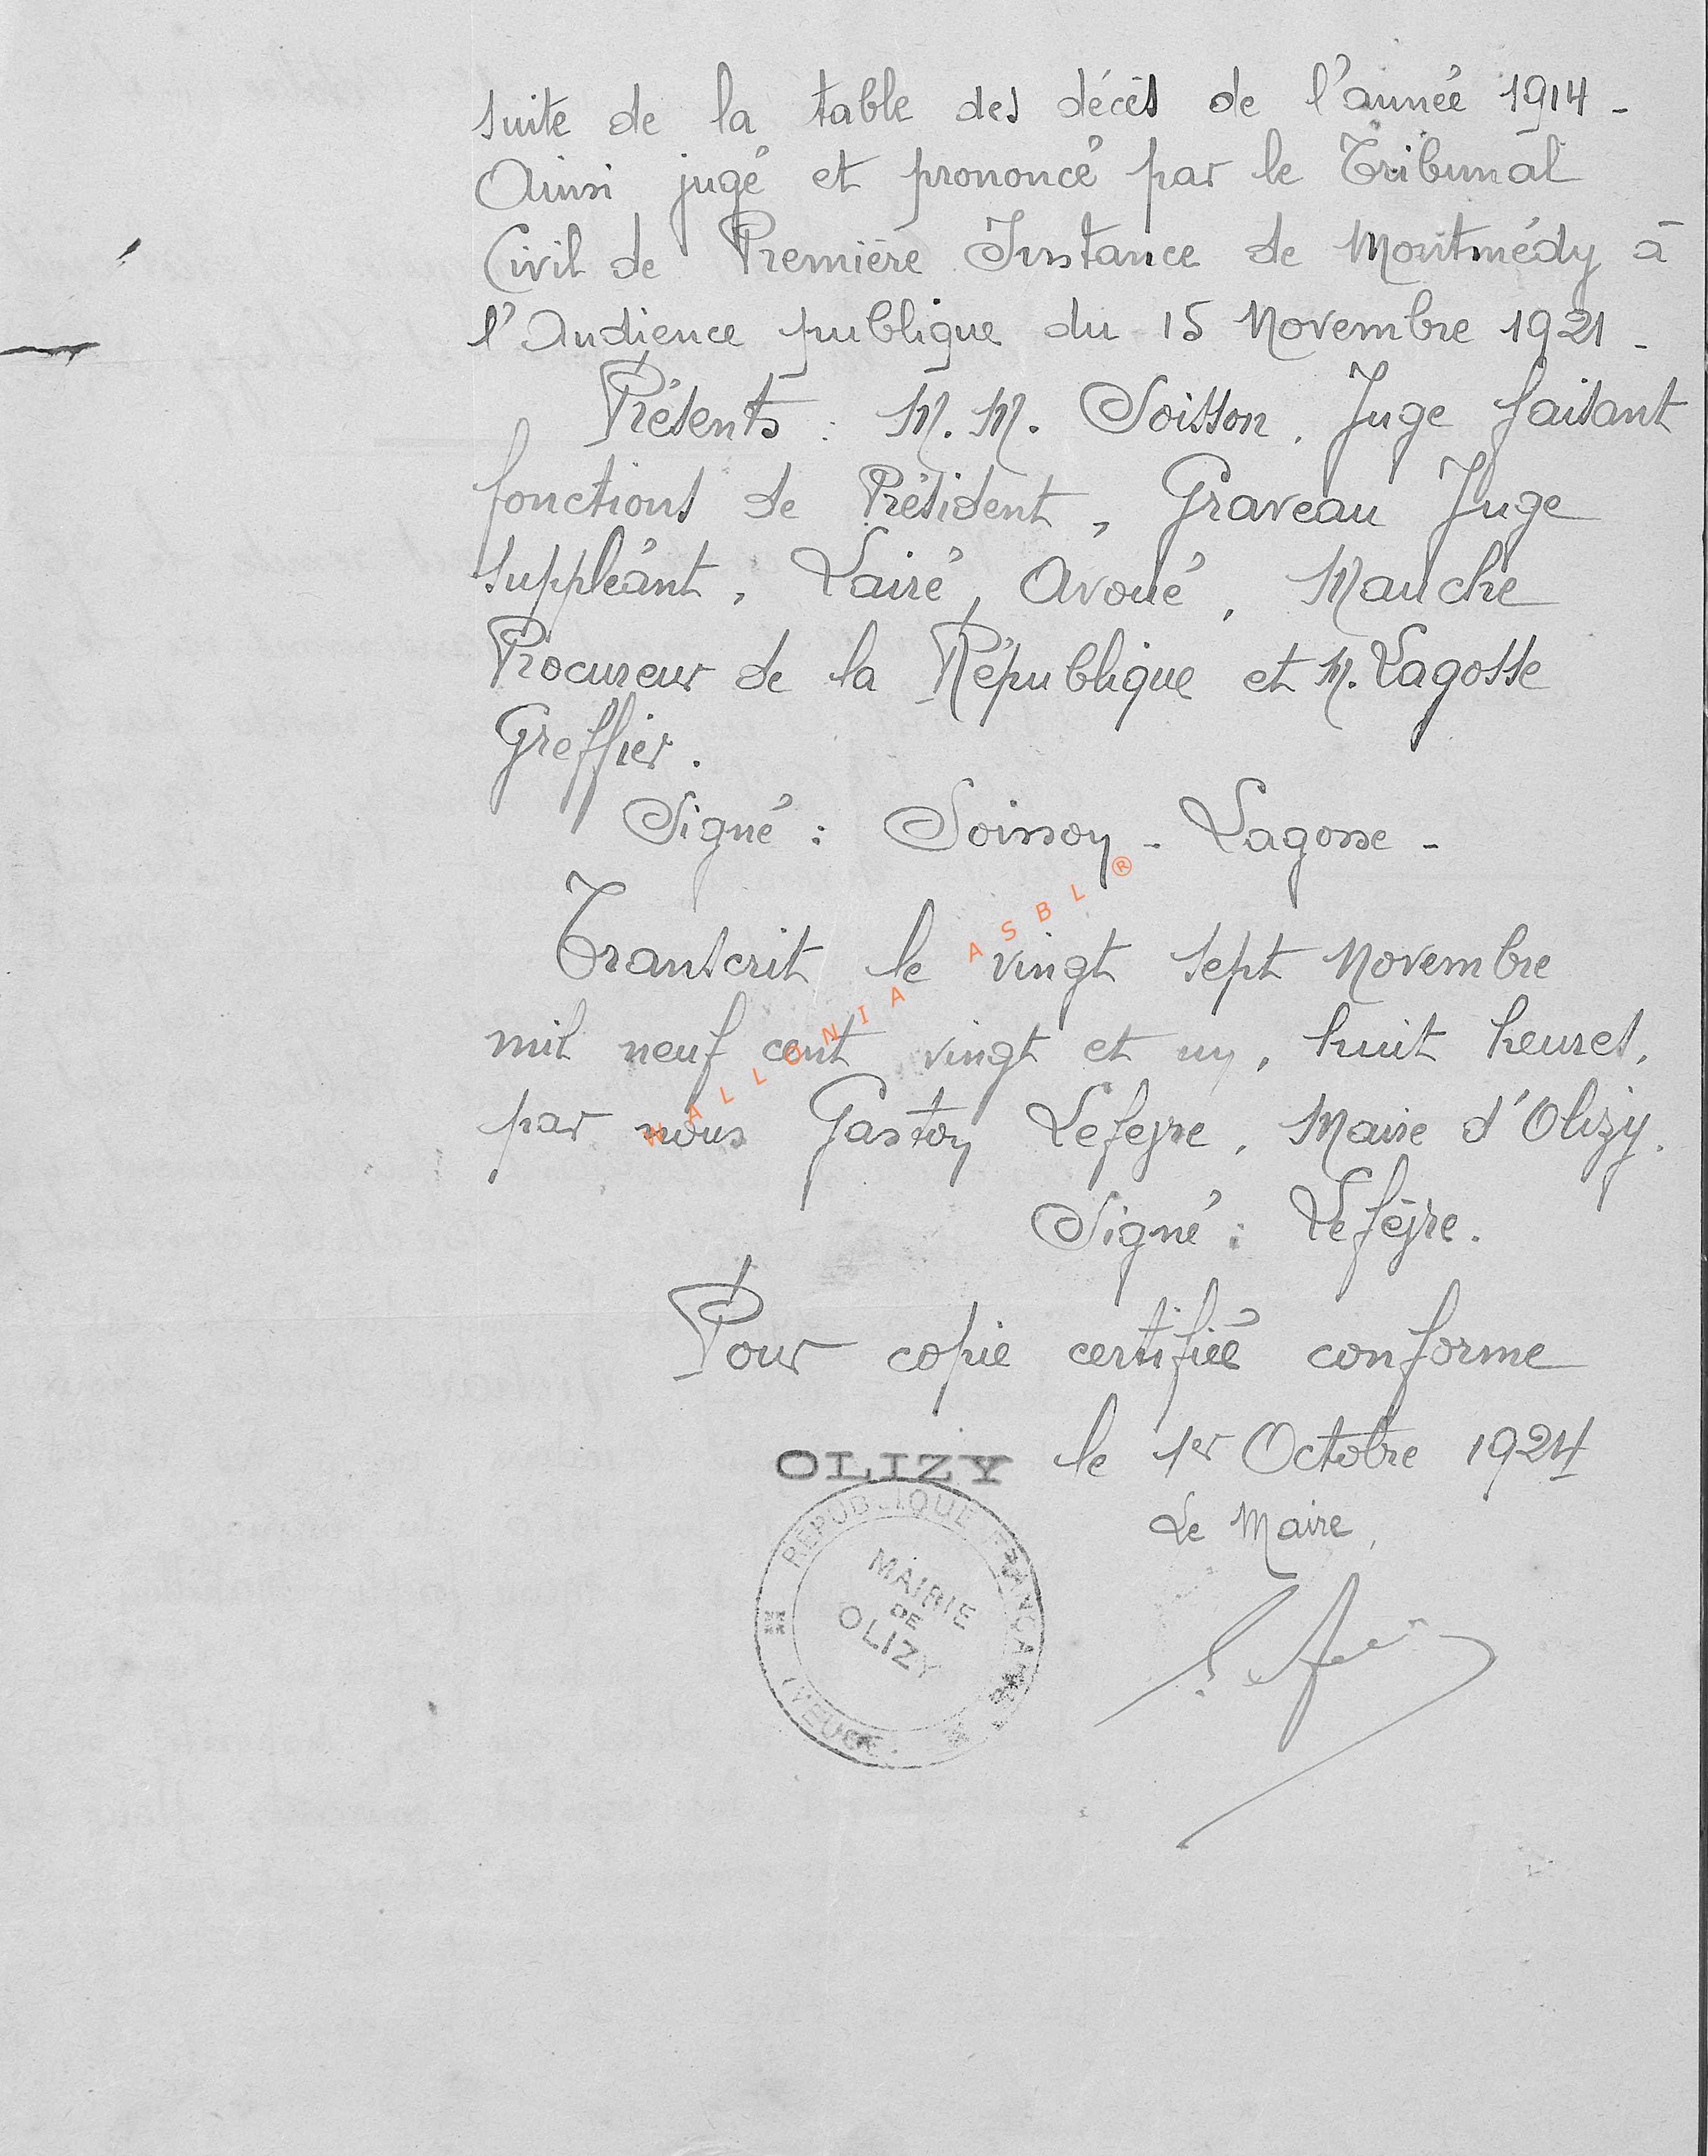 suite de la table des décès de l'année 1914 -
Ainsi jugé et prononcé par le Tribunal
Civil de Première Instance de Montmédy à
l'Audience publique du 15 Novembre 1921 -
Présents : M. M. Soisson, Juge faisant
fonctions de Président, Graveau Juge
suppléant, Lairé, Avoué, Mauche
Procureur de la République et M. Lagosse
Greffier.
Signé : Soisson - Lagosse -
Transcrit le vingt sept Novembre
mil neuf cent vingt et un, huit heures,
par nous Gaston Lefevre, Maire d'Olizy.
Signé : Lefèvre.
Pour copie certifiée conforme
OLIZY le 1er Octobre 1924
Le Maire,
REPUBLIQUE FRANÇAISE
MAIRIE
DE
OLIZY
(MEUSE)
WALLONIA ASBL ®